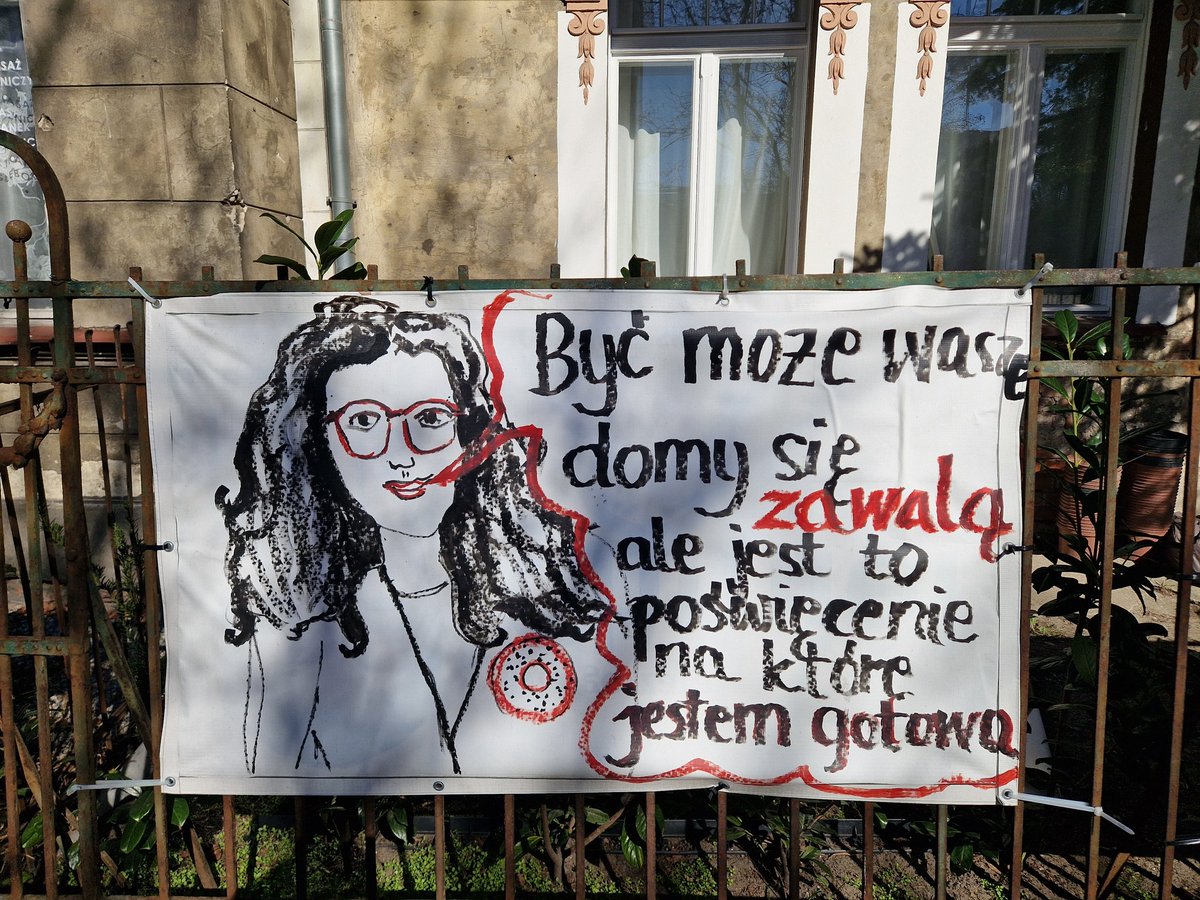 SAŻ
Być może wasze
domy się
zawalą
ale jest to
poświęcenie
na które
jestem gotowa